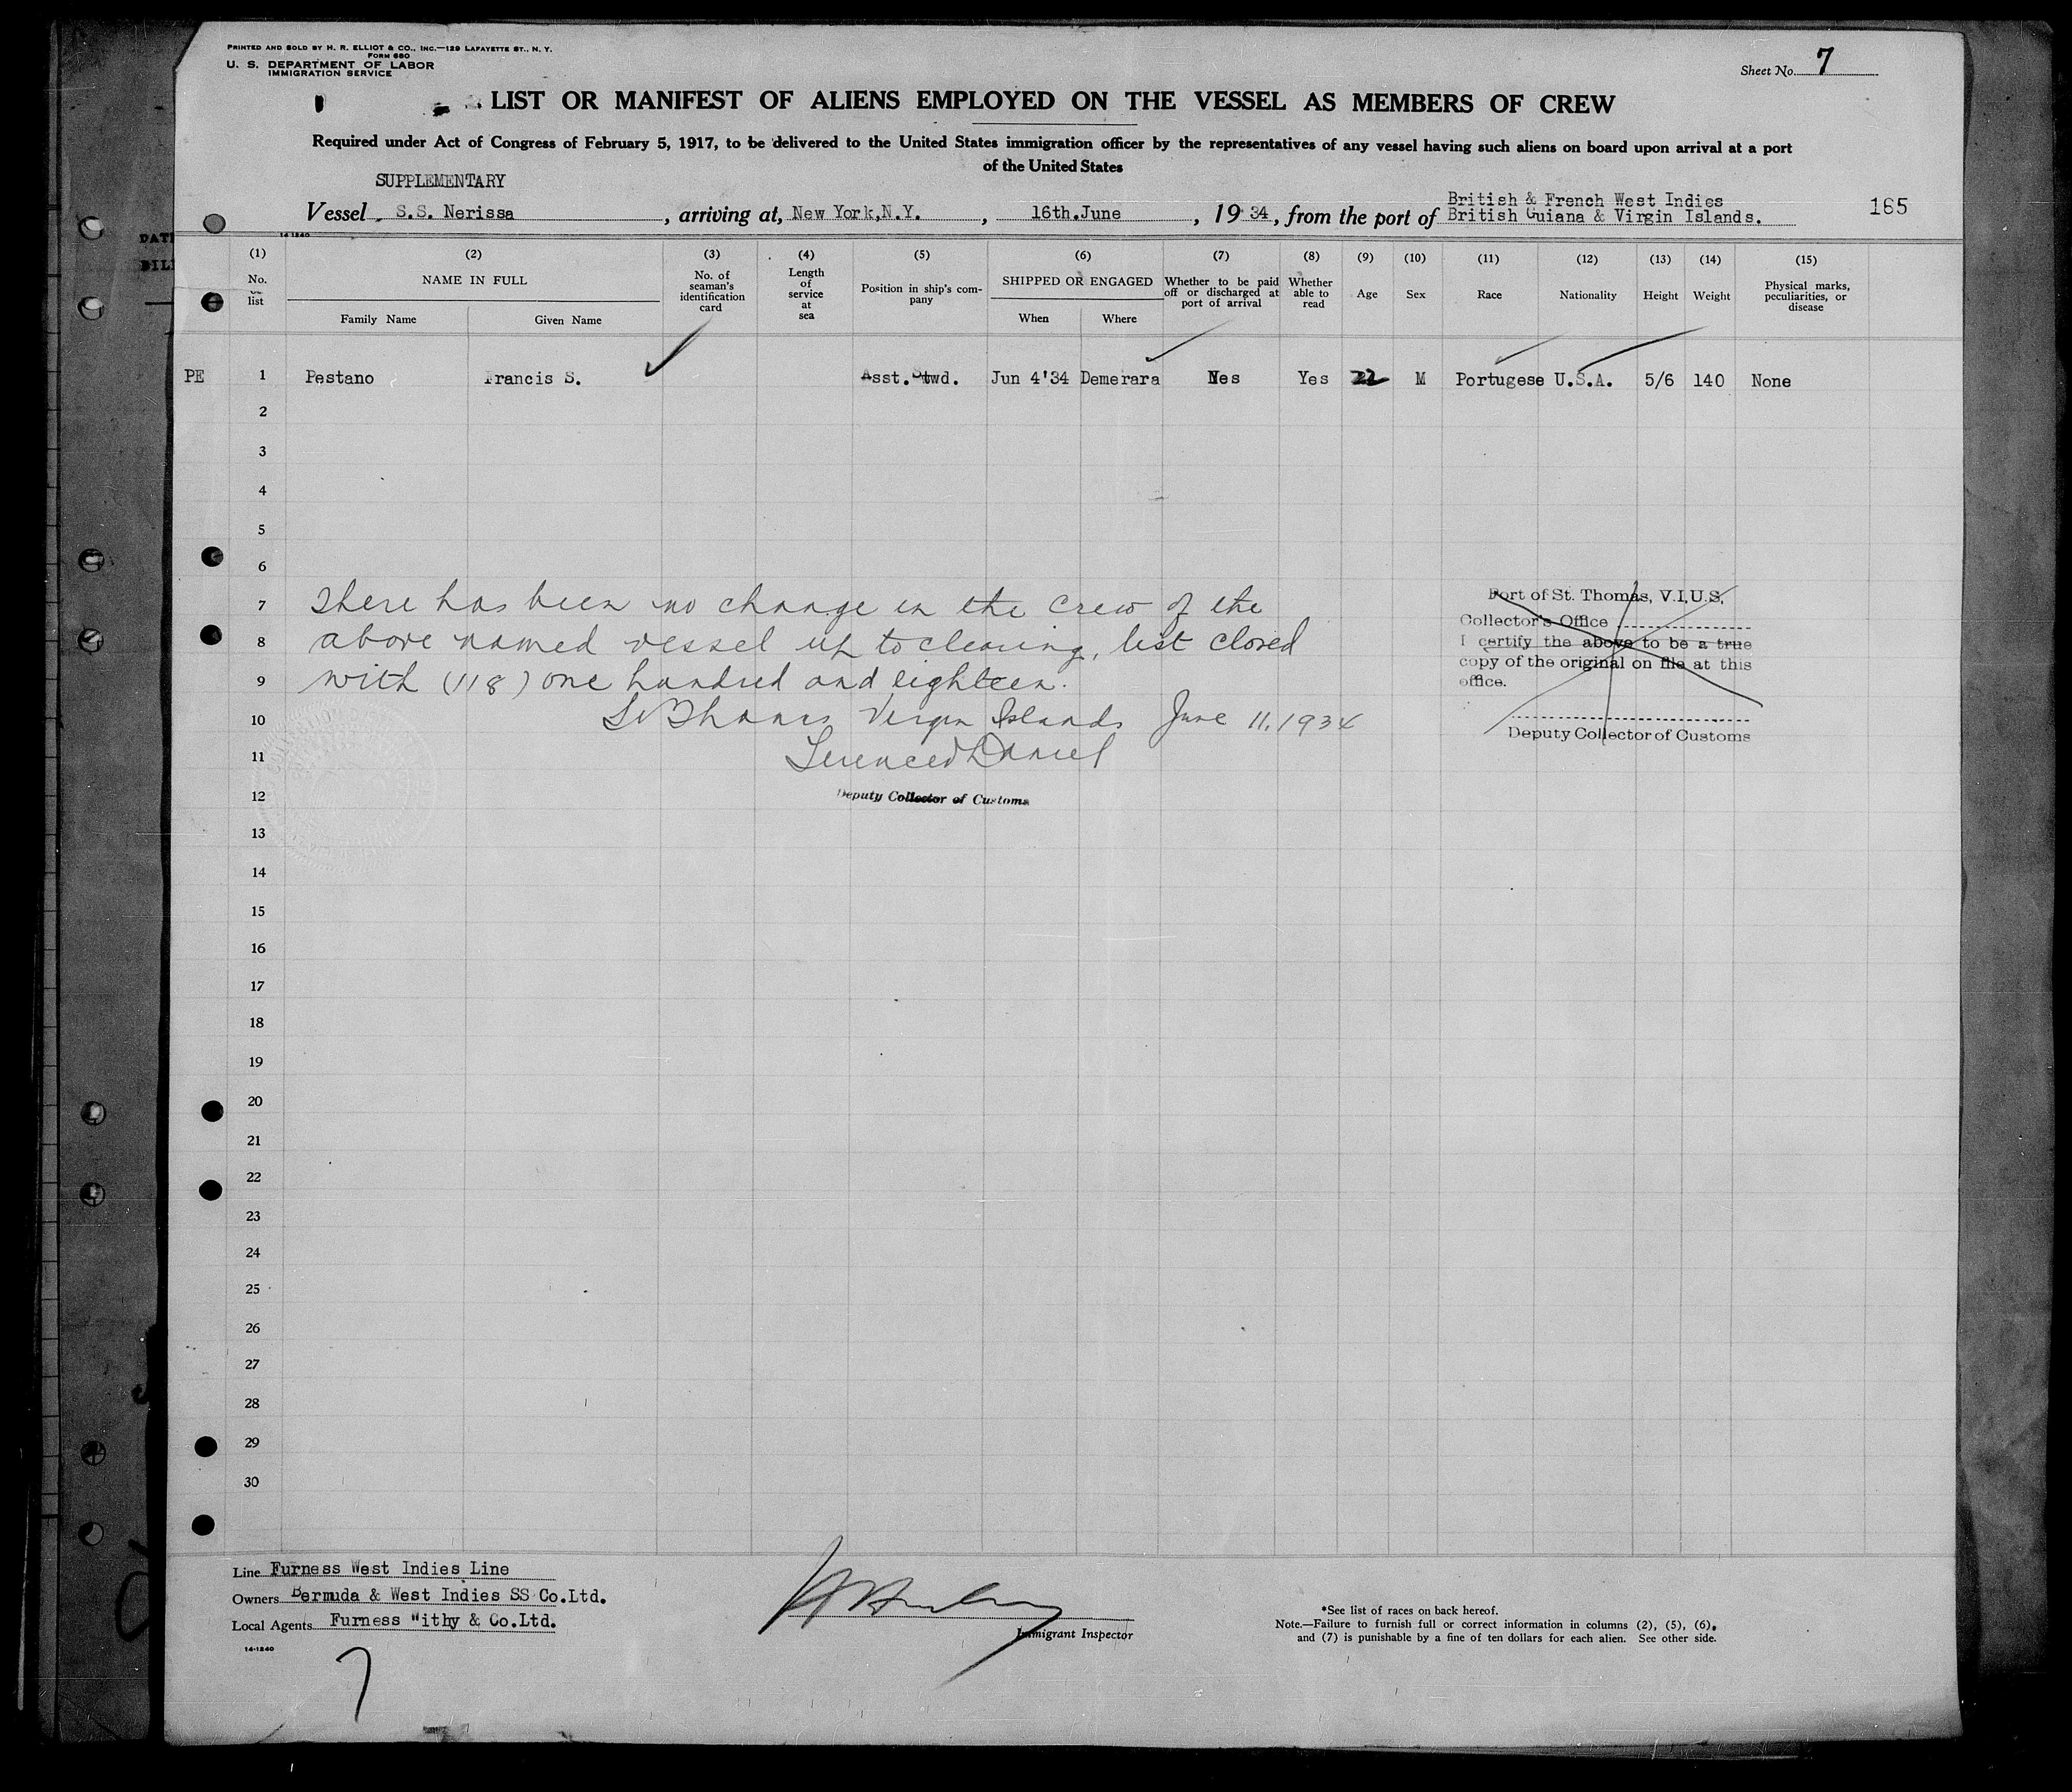 PRINTED AND SOLD BY H. R. ELLIOT & CO., INC.—129 LAFAYETTE ST., N. Y.
FORM 680
U. S. DEPARTMENT OF LABOR
IMMIGRATION SERVICE
Sheet No. 7
LIST OR MANIFEST OF ALIENS EMPLOYED ON THE VESSEL AS MEMBERS OF CREW
Required under Act of Congress of February 5, 1917, to be delivered to the United States immigration officer by the representatives of any vessel having such aliens on board upon arrival at a port
of the United States
SUPPLEMENTARY
Vessel S.S. Nerissa, arriving at, New York,N.Y., 16th.June, 1934, from the port of British & French West Indies
British Guiana & Virgin Islands.
165
14-1240
(1) (2) (3) (4) (5) (6) (7) (8) (9) (10) (11) (12) (13) (14) (15)
No. list
NAME IN FULL
Family Name Given Name
No. of seaman's identification card
Length of service at sea
Position in ship's company
SHIPPED OR ENGAGED
When Where
Whether to be paid off or discharged at port of arrival
Whether able to read
Age
Sex
Race
Nationality
Height
Weight
Physical marks, peculiarities, or disease
PE 1 Pestano Francis S. Asst.Stwd. Jun 4'34 Demerara Yes Yes 22 M Portugese U.S.A. 5/6 140 None
2
3
4
5
6
7 There has been no change in the crew of the
8 above named vessel up to clearing, list closed
9 with (118) one hundred and eighteen.
10 St Thomas Virgin Islands June 11, 1934
11 Daniel
12 Deputy Collector of Customs
Port of St. Thomas, V.I,U.S,
Collector's Office
I certify the above to be a true
copy of the original on file at this
office.
Deputy Collector of Customs
13
14
15
16
17
18
19
20
21
22
23
24
25
26
27
28
29
30
Line Furness West Indies Line
Owners Bermuda & West Indies SS Co.Ltd.
Local Agents Furness Withy & Co.Ltd.
14-1240
Immigrant Inspector
*See list of races on back hereof.
Note.—Failure to furnish full or correct information in columns (2), (5), (6),
and (7) is punishable by a fine of ten dollars for each alien. See other side.
7